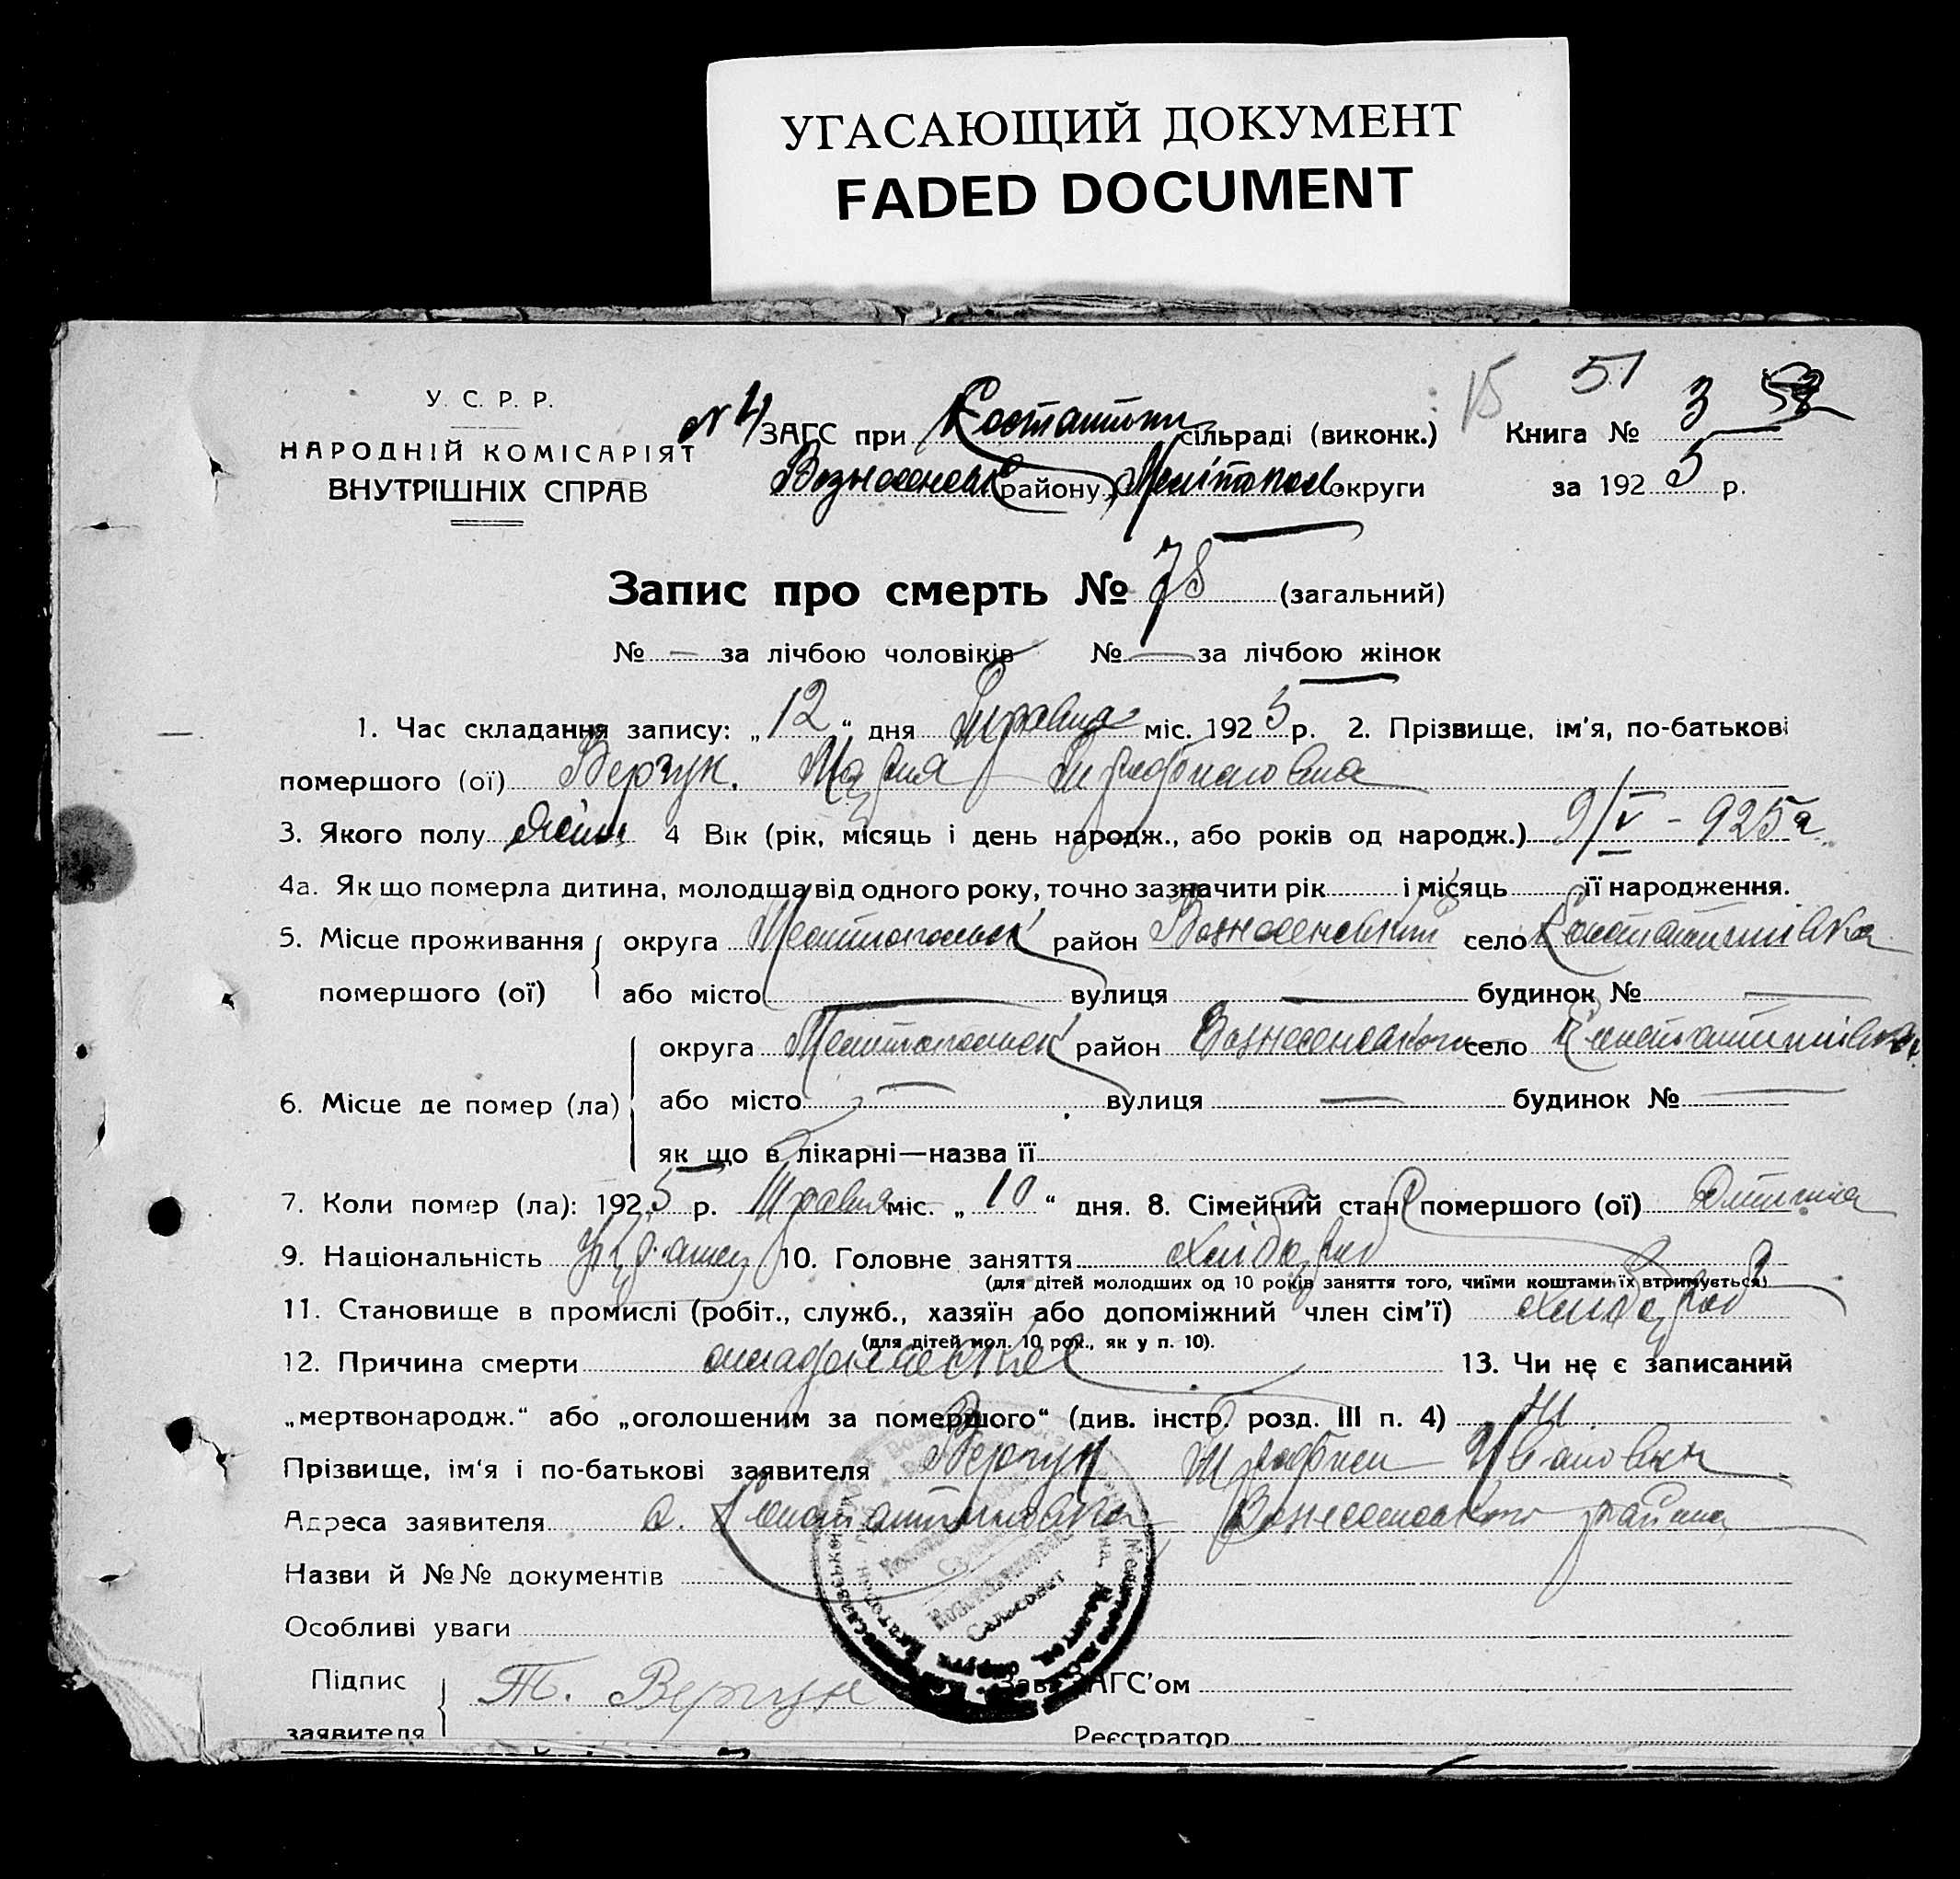 УГАСАЮЩИЙ ДОКУМЕНТ
FADED DOCUMENT
15 51
У. С. Р. Р.
НАРОДНІЙ КОМІСАРІЯТ
ВНУТРІШНІХ СПРАВ
№ 4 ЗАГС при Костантин сільраді (виконк.) Книга № 3
Вознесенськ району, Мелітопол. округи за 192 5 р.
Запис про смерть № 78 (загальний)
№ — за лічбою чоловіків № — за лічбою жінок
1. Час складання запису: „ 12 “ дня Травня міс. 192 5 р. 2. Прізвище, ім'я, по-батькові
помершого (ої) Верчун. Марія Трифонаовна
3. Якого полу жіноч 4 Вік (рік, місяць і день народж., або років од народж.) 9/V - 925 г.
4а. Як що померла дитина, молодша від одного року, точно зазначити рік і місяць її народження.
5. Місце проживання округа Мелітопольск район Вознесенський село Константинівка
помершого (ої) або місто — вулиця — будинок № —
6. Місце де помер (ла) округа Мелітопольск район Вознесенського село Константинівка
або місто — вулиця — будинок № —
як що в лікарні—назва її
7. Коли помер (ла): 192 5 р. Травня міс. „ 10 “ дня. 8. Сімейний стан помершого (ої) Дитина
9. Національність Українец 10. Головне заняття хлібороб
(для дітей молодших од 10 років заняття того, чиїми коштами їх втримується)
11. Становище в промислі (робіт., служб., хазяїн або допоміжний член сім'ї) хлібороб
(для дітей мол. 10 рок., як у п. 10).
12. Причина смерти 13. Чи не є записаний
„мертвонародж.“ або „оголошеним за помершого“ (див. інстр. розд. III п. 4) Ні
Прізвище, ім'я і по-батькові заявителя Верчун Трифон Иванович
Адреса заявителя с. Константиновка Вознесенського района
Назви й №№ документів
Особливі уваги
Підпис
заявителя Т. Верчун
Зав. ЗАГС'ом
Реєстратор
Сельсовет